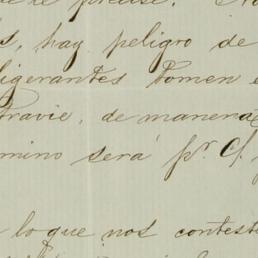 de le precise.
s, hay peligro de
ligerantes tomen e
travie, de manera
mino será pr. Cl.
lo que nos contest